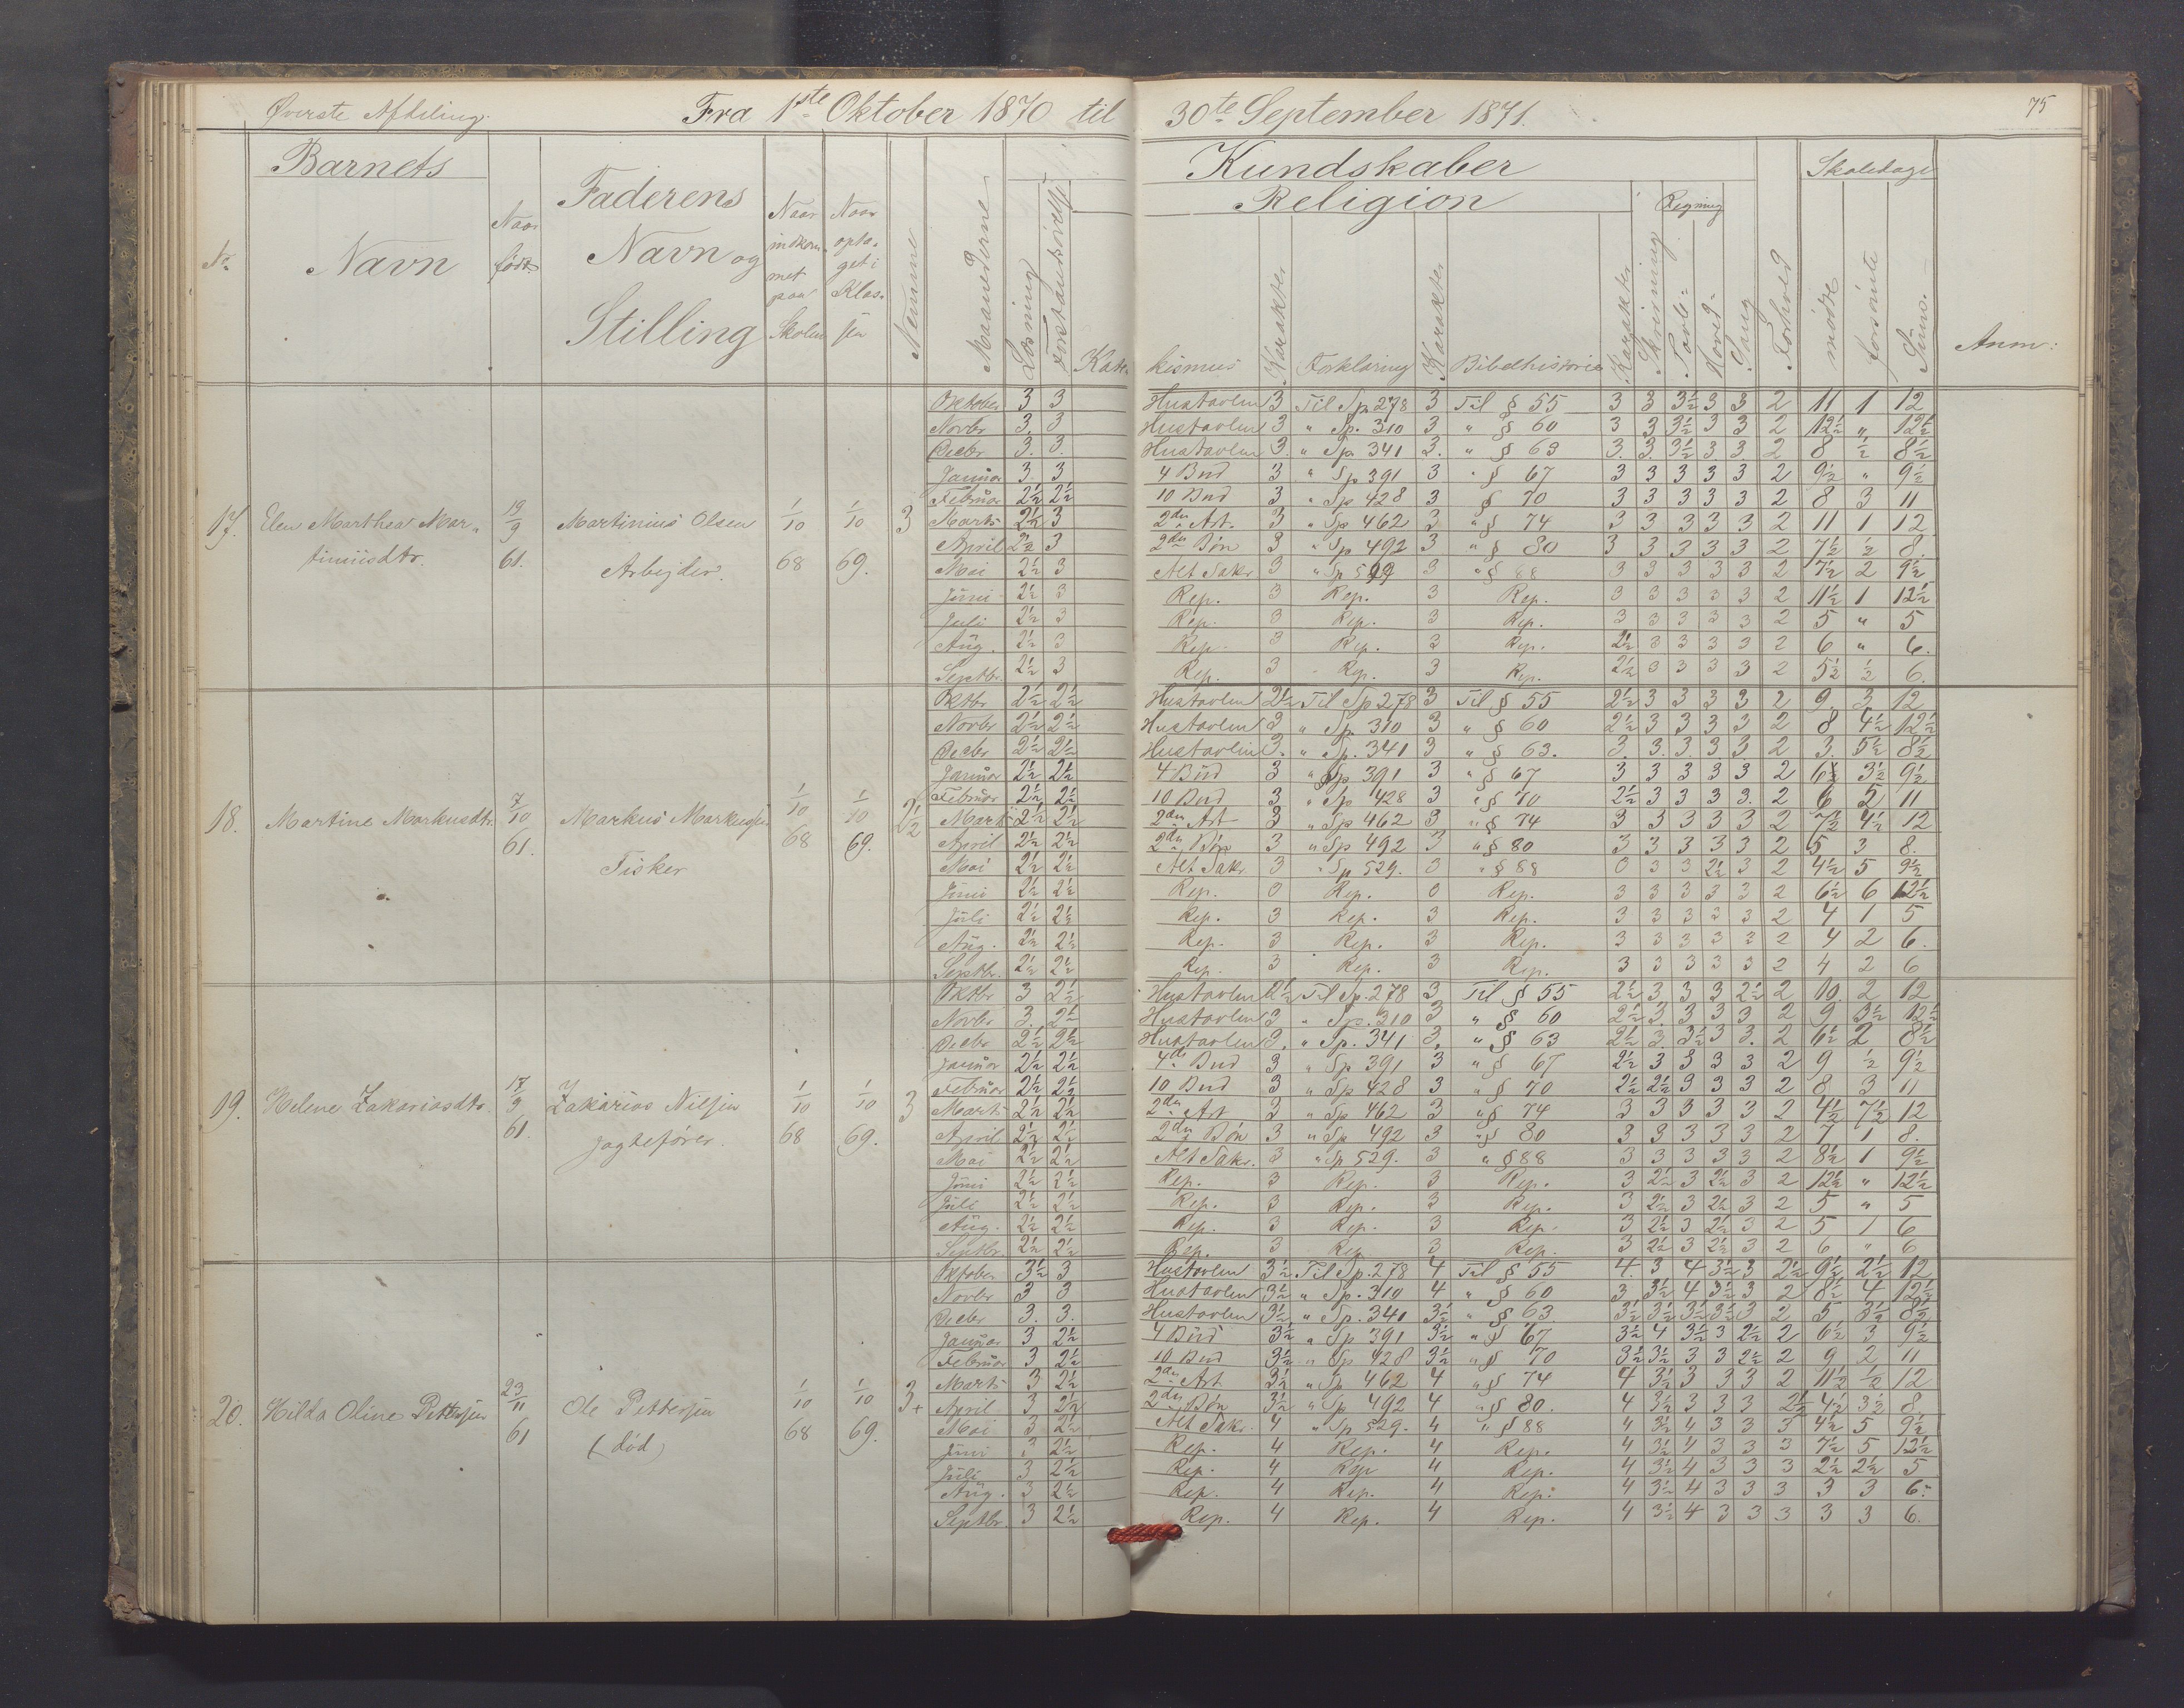 Øverste Afdeling. Fra 1ste Oktober 1870 til 30te September 1871. 75
No Barnets Navn Naar født Faderens Navn og Stilling Naar indkommet paa Skolen Naar optaget i Klassen Nemme Maanederne Læsning Forstandsøvelse Kundskaber Religion Katekismus Karakter Forklaring Karakter Bibelhistorie Karakter Skrivning Regning Tavle- Hoved- Sang Forhold Skoledage mødte forsømte Sum. Anm:
17. Elen Marthea Martiniusdtr. 19/9 61. Martinius Olsen Arbejder. 1/10 68 1/10 69. 3
Oktober 3 3 Hustavlen 3 Til Sp. 278 3 Til § 55 3 3 3½ 3 3 2 11 1 12
Novbr 3. 3 Hustavlen 3 " Sp. 310 3 " § 60 3 3 3½ 3 3 2 12½ " 12½
Decbr 3. 3. Hustavlen 3. " Sp. 341 3. " § 63 3. 3. 3½ 3. 3. 2 8 ½ 8½
Januar 3 3 4 Bud 3 " Sp 391 3 " § 67 3 3 3 3 3 2 9½ " 9½
Februar 2½ 2½ 10 Bud 3 " Sp 428 3 § 70 3 3 3 3 3 2 8 3 11
Marts 2½ 3 2den Art. 3 " Sp 462 3 " § 74 3 3 3 3 3 2 11 1 12
April 2½ 3 2den Bøn 3 " Sp 492 3 " § 80 3 3 3 3 3 2 7½ ½ 8.
Mai 2½ 3 Alt Sakr 3 " Sp 3 " § 88 3 3 3 3 3 2 7½ 2 9½
Juni 2½ 3 Rep. 3 Rep. 3 Rep. 3 3 3 3 3 2 11½ 1 12½
Juli 2½ 3 Rep. 3 Rep. 3 Rep. 3 3 3 3 3 2 5 " 5
Aug. 2½ 3 Rep. 3 Rep. 3 Rep. 2½ 3 3 3 3 2 6 " 6.
Septbr. 2½ 3 Rep. 3 Rep. 3 Rep. 2½ 3 3 3 3 2 5½ ½ 6.
18. Martine Markusdtr. 7/10 61. Markus Markussen Fisker 1/10 68 1/10 69. 2½
Oktbr 2½ 2½ Hustavlen 2½ Til Sp. 278 3 Til § 55 2½ 3 3 3 3 2 9. 3 12
Novbr 2½ 2½ Hustavlen 3 " Sp. 310 3 " § 60 2½ 3 3 3 3 2 8 4½ 12½
Decbr 2½ 2½ Hustavlen 3. " Sp. 341 3 " § 63. 3. 3. 3 3 3 2 3. 5½ 8½
Januar 2½ 2½ 4 Bud 3 " Sp 391 3 " § 67 3 3 3 3 3 2 6½ 3½ 9½
Februar 2½ 2½ 10 Bud 3 " Sp 428 3 " § 70 2½ 3 3 3 3. 2 6 5 11
Marts 2½ 2½ 2den Art 3 " Sp 462 3 " § 74 3 3 3 3 3 2 7½ 4½ 12
April 2½ 2½ 2den Bøn 3 " Sp 492 3 " § 80 3 3 3 3 3 2 5 3 8.
Mai 2½ 2½ Alt Sakr. 3 " Sp 529. 0 " § 88 0 3 3 2½ 3 2 4½ 5 9½
Juni 2½ 2½ Rep. 0 Rep. 0 Rep. 3 3 3 3 3 2 6½ 6 12½
Juli 2½ 2½ Rep. 3 Rep. 3 Rep. 3 3 3 3 3 2 4 1 5
Aug. 2½ 2½ Rep. 3 Rep. 3 Rep. 3 3 3 3 3 2 4 2 6.
Septbr. 2½ 2½ Rep. 3 Rep. 3 Rep. 3 3 3 3 3 2 4 2 6
19. Helene Zakariasdtr. 17/9 61. Zakarias Nilsen Jagtefører. 1/10 68 1/10 69. 3
Oktbr 3 2½ Hustavlen 2½ Til Sp. 278 3 Til § 55 2½ 3 3 3 2½ 2 10. 2 12
Novbr 3. 2½ Hustavlen 3 " Sp. 310 3 " § 60 2½ 3 3 3 3 2 9 3½ 12½
Decbr 2½ 2½ Hustavlen 3. " Sp. 341 3. " § 63 2½ 3. 3½ 3 3. 2 6½ 2 8½
Januar 2½ 2½ 4de Bud 3 " Sp 391 3 " § 67 2½ 3 3 3 3 2 9 ½ 9½
Februar 2½ 2½ 10 Bud 3 " Sp 428 3 " § 70 2½ 2½ 3 3 3 2 8 3 11
Marts 2½ 2½ 2den Art 3 " Sp 462 3 " § 74 3 3 3 3 3 2 4½ 7½ 12
April 2½ 2½ 2den Bøn 3 " Sp 492 3 " § 80 3 3 3 3 3 2 7 1 8.
Mai 2½ 2½ Alt Sakr. 3 " Sp 529. 3 " § 88 3 3 3 3 3 2 8½ 1 9½
Juni 2½ 2½ Rep. 3 Rep. 3 Rep. 3 2½ 3 2½ 3 2 12½ " 12½
Juli 2½ 2½ Rep. 3 Rep. 3 Rep. 3 2½ 3 2½ 3 2 5 " 5
Aug. 2½ 2½ Rep. 3 Rep. 3 Rep. 3 2½ 3 2½ 3 2 5 1 6
Septbr. 2½ 2½ Rep. 3 Rep. 3 Rep. 3 2½ 3 2½ 3 2 6 " 6
20. Hilda Oline Pettersen 23/11 61 Ole Pettersen (død) 1/10 68 1/10 69. 3+
Oktober 3½ 3 Hustavlen 3½ Til Sp. 278 4 Til § 55 4. 3 4 3½ 3 2½ 9½ 2½ 12
Novbr 3 3 Hustavlen 3½ " Sp. 310 4 " § 60 3 3½ 4 3½ 3 2 8½ 4 12½
Decbr 3. 3. Hustavlen 3½ " Sp. 341 3½ " § 63. 3½ 3½ 3½ 3½ 3 2 5 3½ 8½
Januar 3 2½ 4 Bud 3½ " Sp 391 3½ " § 67 3½ 4 3½ 3 2½ 2 6½ 3 9½
Februar 3 2½ 10 Bud 3½ " Sp 428 3½ " § 70 3½ 3½ 3 3 2½ 2 9 2 11
Marts 3 2½ 2den Art 3½ " Sp 462 4 " § 74 4 3½ 3 3 3 2 11½ ½ 12
April 3 2½ 2den Bøn 3½ " Sp 492 4 " § 80. 4 3½ 3 3 3 2½ 4½ 3½ 8
Mai 3 2½ Alt Sakr. 4 " Sp 529. 4 " § 88 4 3½ 4 3 3 3 4½ 5 9½
Juni 3 2½ Rep. 4 Rep. 4 Rep. 4 3½ 4 3 3 3 7½ 5 12½
Juli 3 2½ Rep. 4 Rep 4 Rep. 4 3½ 4 3 3 3 2½ 2½ 5
Aug. 3 2½ Rep. 4 Rep. 4 Rep. 4 3½ 4 3 3 3 3 3 6.
Septbr. 3 2½ Rep. 4 Rep. 4 Rep. 4 3½ 4 3 3 3 3 3 6.